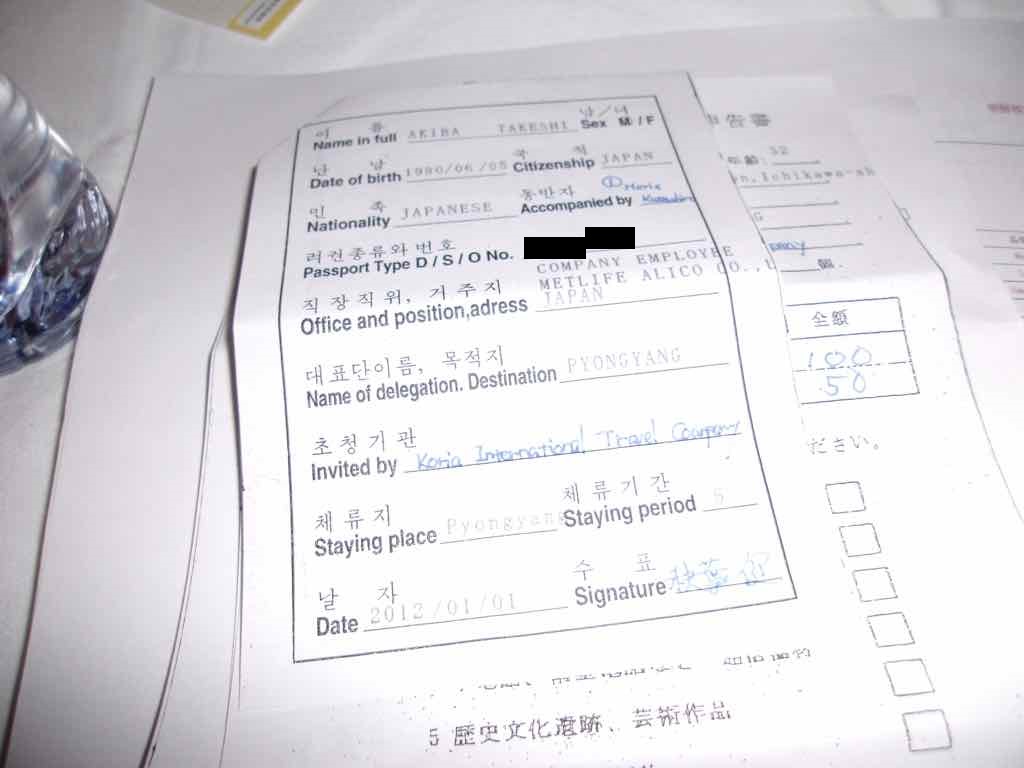 이 름 남/녀
Name in full AKIBA TAKESHI Sex M / F
난 날 국 적
Date of birth 1980/06/05 Citizenship JAPAN
민 족 동반자 ①
Nationality JAPANESE Accompanied by
려권종류와 번호
Passport Type D / S / O No.
COMPANY EMPLOYEE
직장직위, 거주지 METLIFE ALICO CO.,
Office and position,adress JAPAN
대표단이름, 목적지
Name of delegation. Destination PYONGYANG
초청기관
Invited by Koria International Travel Company
체류지 체류기간
Staying place Pyongyang Staying period 5
날 자 수 표
Date 2012/01/01 Signature 秋葉
申告書
年齢: 32
Ichikawa-sh
個.
全額
100
50
ださい。
5 歴史文化遺跡、芸術作品